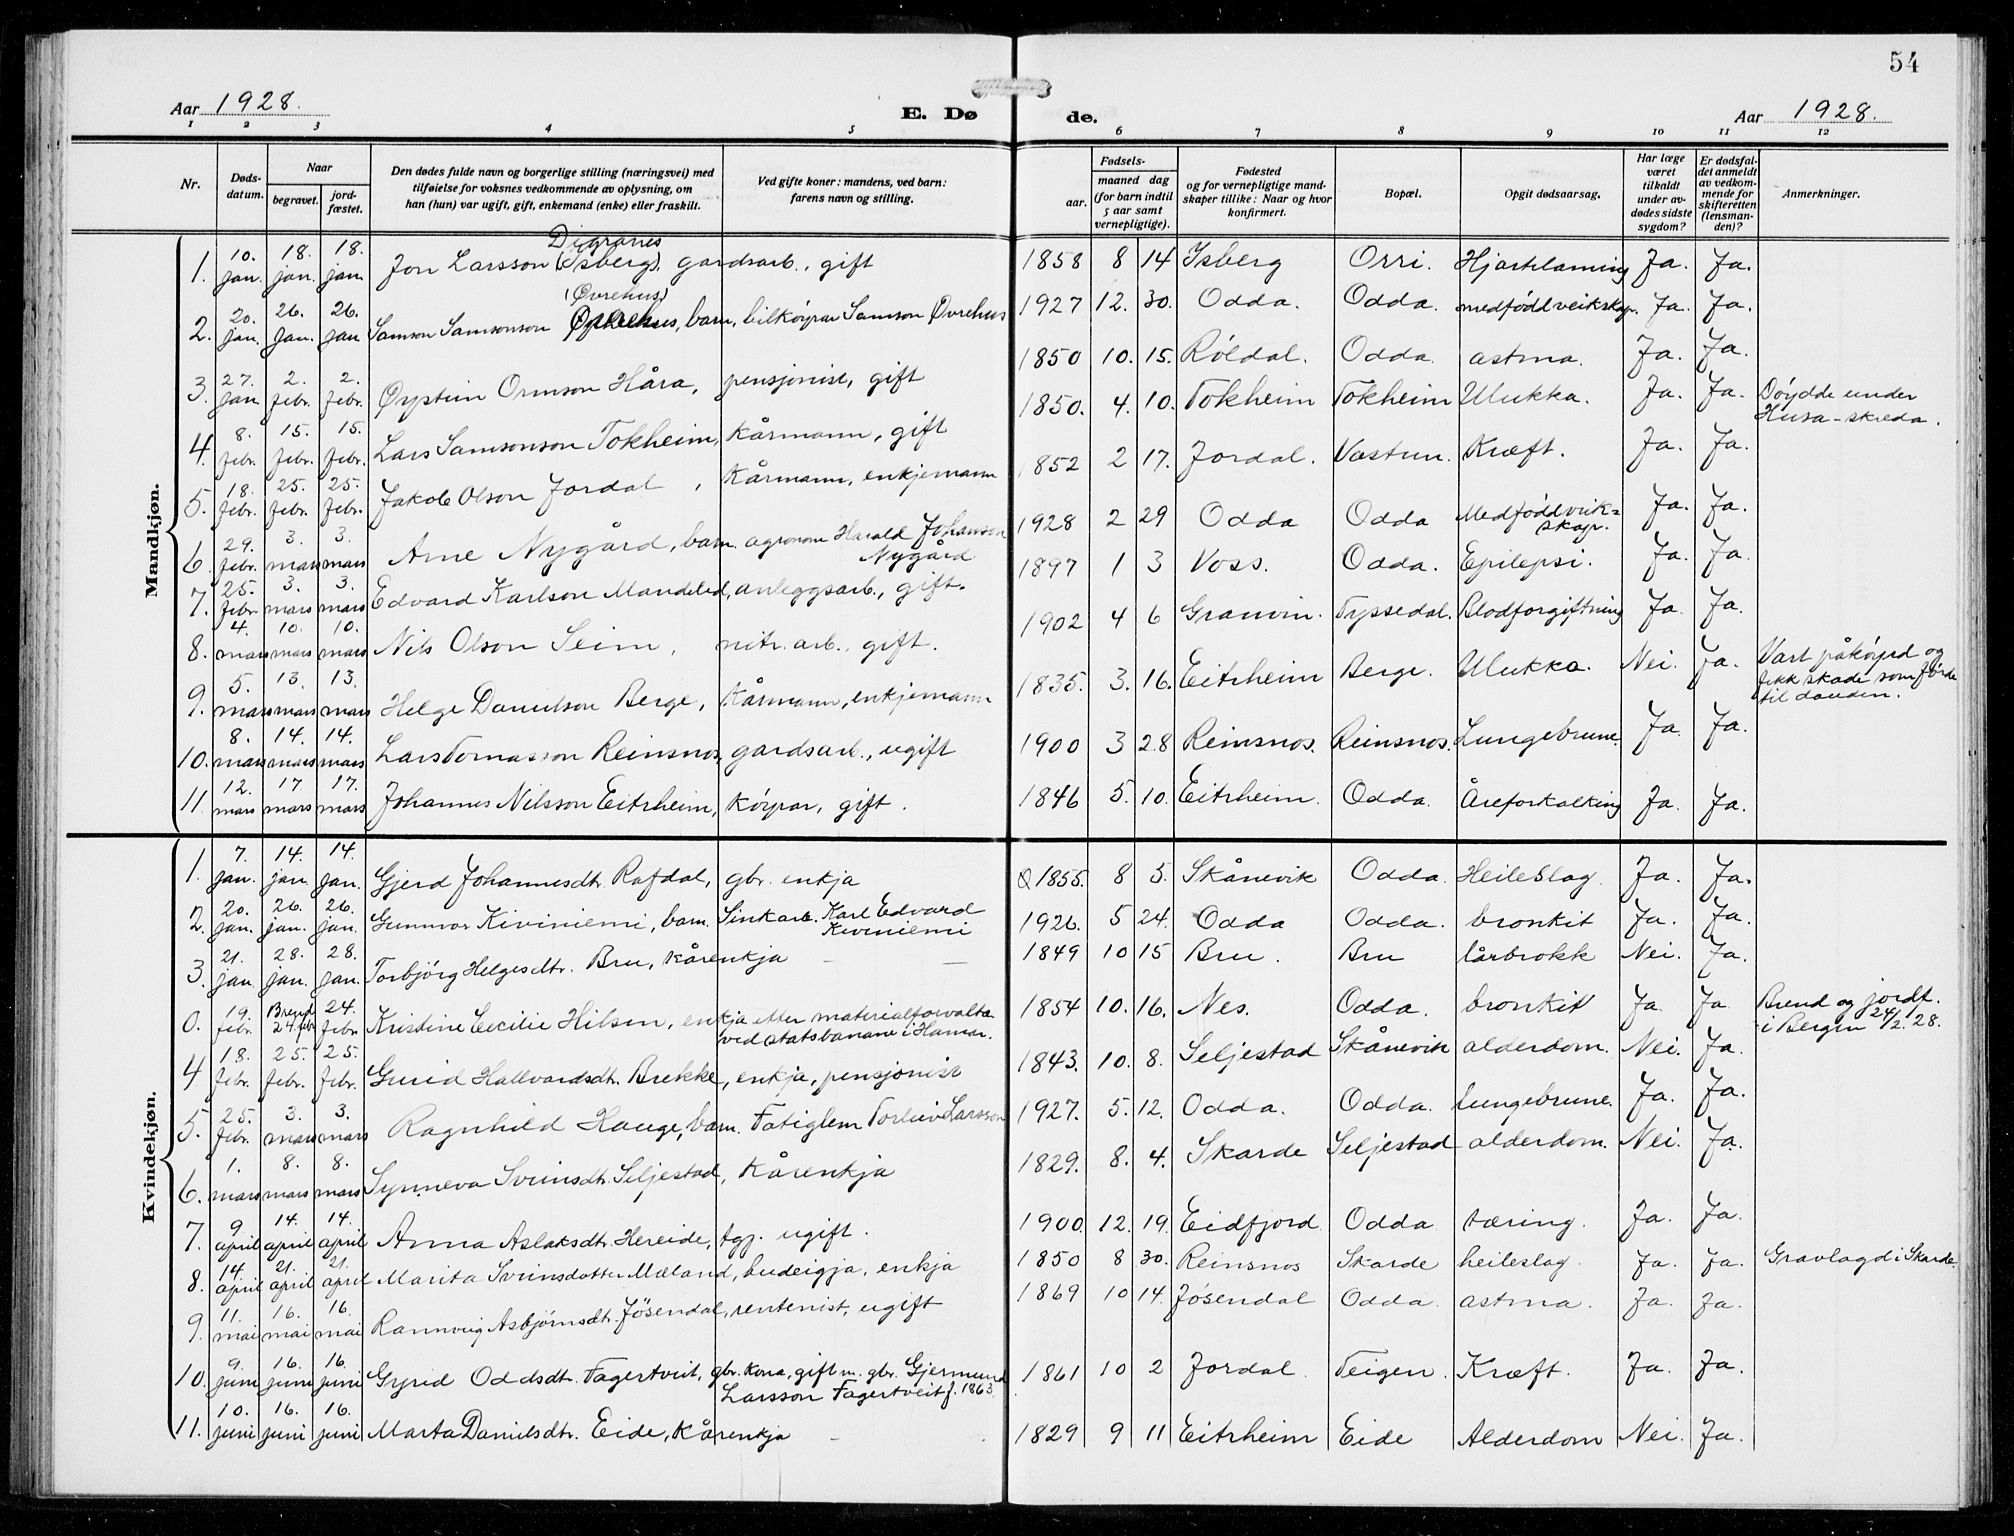 54
Aar 1928.
E. Døde.
Aar 1928.
1 2 3 4 5 6 7 8 9 10 11 12
Nr.
Døds-datum.
Naar
begravet.
jord-fæstet.
Den dødes fulde navn og borgerlige stilling (næringsvei) med
tilføielse for voksnes vedkommende av oplysning, om
han (hun) var ugift, gift, enkemand (enke) eller fraskilt.
Ved gifte koner: mandens, ved barn:
farens navn og stilling.
Fødsels-
aar.
maaned dag
(for barn indtil
5 aar samt
vernepligtige).
Fødested
og for vernepligtige mand-
skaper tillike: Naar og hvor
konfirmert.
Bopæl.
Opgit dødsaarsag.
Har læge
været
tilkaldt
under av-
dødes sidste
sygdom?
Er dødsfal-
det anmeldt
av vedkom-
mende for
skifteretten
(lensman-
den)?
Anmerkninger.
Mandkjøn.
1. 10. jan. 18. jan. 18. jan. Jon Larsson Digranes (Isberg), gardsarb., gift 1858 8 14 Isberg Orri. Hjartelaming Ja. Ja.
2. 20. jan. 26. jan. 26. jan. Samson Samsonson (Øvrehus), barn, bilkøyrar Samson Øvrehus 1927 12. 30. Odda. Odda. medfødd veikskap. Ja. Ja.
3. 27. jan 2. febr. 2. febr. Øystein Ormson Håra, pensjonist, gift 1850 10. 15. Røldal. Odda. astma. Ja. Ja.
4. 8. febr. 15. febr. 15. febr. Lars Samsonson Tokheim, Kårmann, gift 1850. 4. 10. Tokheim Tokheim Ulukka. Ja. Ja. Døydde under
Husa-skreda.
5. 18. febr. 25. febr. 25. febr. Jakob Olson Jordal, Kårmann, enkjemann 1852 2 17. Jordal. Vastun. Kræft. Ja. Ja.
6. 29. febr. 3. mars 3. mars Arne Nygård, barn. agronom Harald Johanson
Nygård 1928 2 29 Odda Odda Medfødd veik-
skap. Ja. Ja.
7. 25. febr. 3. mars 3. mars Edvard Karlson Mandelid, anleggsarb., gift. 1897 1 3 Voss. Odda. Epilepsi. Ja. Ja.
8. 4. mars 10. mars 10. mars Nils Olson Seim, nitr. arb., gift. 1902 4 6 Granvin. Tyssedal. Blodforgiftning Ja. Ja.
9. 5. mars 13. mars 13. mars Helge Danielson Berge, Kårmann, enkjemann 1835. 3. 16. Eitrheim Berge. Ulukka. Nei. Ja. Vart påkøyrd og
fekk skade som førde
til dauden.
10. 8. mars 14. mars 14. mars Lars Tomasson Reinsnos, gardsarb., ugift 1900 3 28 Reinsnos. Reinsnos. Lungebrune. Ja. Ja.
11. 12. mars 17. mars 17. mars Johannes Nilsson Eitrheim, Køyrar, gift. 1846 5. 10. Eitrheim. Odda. Åreforkalking Ja. Ja.
Kvindekjøn.
1. 7. jan. 14. jan. 14. jan. Gjerd Johannesdtr. Rafdal, gbr. enkja 1855. 8 5. Skånevik Odda. Heileslag. Ja. Ja.
2. 20. jan. 26. jan. 26. jan. Gunnvor Kiviniemi, barn. Sinkarb. Karl Edvard
Kiviniemi 1926. 5 24. Odda Odda. bronkit Ja. Ja.
3. 21. jan. 28. jan. 28. jan. Torbjørg Helgesdtr. Bru, kårenkja 1849 10 15 Bru. Bru lårbrokk Nei. Ja.
0. 19. febr. Brend 24. febr 24. febr. Kristine Cecilie Hilsen, enkja etter materialforvalta
ved statsbanane i Hamar. 1854 10. 16. Nes. Odda. bronkit Ja Ja Brend og jordf.
i Bergen 24/2. 28.
4 18. febr. 25. febr. 25. febr. Gurid Hallvardsdtr. Brekke, enkja, pensjonist 1843. 10. 8. Seljestad Skånevik alderdom. Nei. Ja.
5. 25. febr. 3. mars 3. mars Ragnhild Hauge, barn. Fatiglem Torleiv Larsson 1927. 5. 12. Odda. Odda. lungebrune. Ja. Ja.
6. 1. mars 8. mars 8. mars Synneva Sveinsdtr. Seljestad, Kårenkja 1829. 8. 4. Skarde Seljestad alderdom. Nei. Ja.
7. 9 april 14. april 14. april Anna Aslaksdtr. Hereide, tgj. ugift. 1900. 12. 19. Eidfjord Odda tæring. Ja. Ja.
8. 14. april 21. april 21. april Marita Sveinsdotter Mæland, budeigja, enkja 1850 8 30. Reinsnos Skarde heileslag Ja. Ja. Gravlagd i Skarde
9. 11. mai 16. mai 16. mai Rannveig Asbjørnsdtr. Jøsendal, rentenist, ugift 1869 10 14. Jøsendal Odda. astma. Ja. Ja.
10. 9. juni 16. juni 16. juni Gyrid Oddsdtr. Fagertveit, gbr. kona, gift m. gbr. Gjermund
Larsson Fagertveit f. 1863 1861 10 2 Jordal Teigen. Kræft. Ja. Ja.
11. 10. juni 16. juni 16. juni Marta Danielsdtr. Eide, Kårenkja 1829 9 11 Eitrheim Eide Alderdom Nei. Ja.